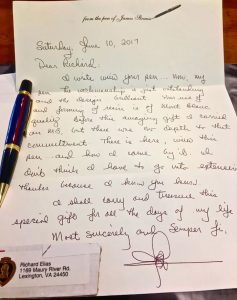 from the pen of James
Saturday, June 10, 2017
Dear Richard:
I write with your pen... Now, my
pen. The workmanship is just outstanding
and the design brilliant. Was use of
and gunning of mine is of Mont Blanc
quality. Before this amazing gift I carried
an MB, but there was no depth to that
commitment. There is here, with this
pen and how I came by it. I
don't think I have to go into extensive
thanks because I know you know
I shall carry and treasure this
special gift for all the days of my life
Most sincerely and Semper Fi,
Richard Elias
1169 Maury River Rd.
Lexington, VA 24450